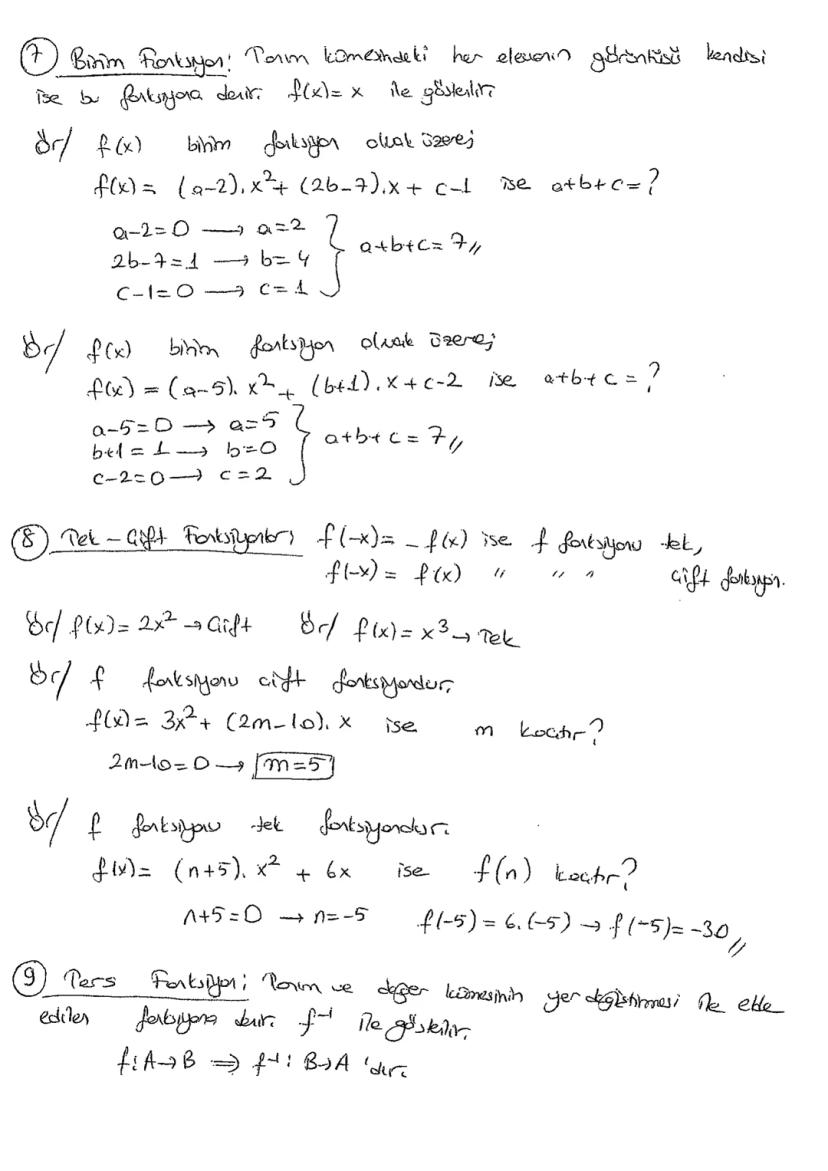 7 Birim Fonksiyon: Tanım kümesindeki her elemanın görüntüsü kendisi
ise bu fonksiyona denir. f(x)= x ile gösterilir.
Ör/ f(x) birim fonksiyon olmak üzere;
f(x) = (a-2).x² + (2b-7).x + c-1 ise a+b+c=?
a-2=0 → a=2
2b-7=1 → b=4 } a+b+c=7//
c-1=0 → c=1
Ör/ f(x) birim fonksiyon olmak üzere;
f(x) = (a-5).x² + (b+1).x + c-2 ise a+b+c=?
a-5=0 → a=5
b+1=1 → b=0 } a+b+c=7//
c-2=0 → c=2
8 Tek - Çift Fonksiyonlar: f(-x)= -f(x) ise f fonksiyonu tek,
f(-x) = f(x) " " " çift fonksiyon.
Ör/ f(x)= 2x² → Çift Ör/ f(x)= x³ → Tek
Ör/ f fonksiyonu çift fonksiyondur.
f(x)= 3x² + (2m-10).x ise m kaçtır?
2m-10=0 → m=5
Ör/ f fonksiyonu tek fonksiyondur.
f(x)= (n+5).x² + 6x ise f(n) kaçtır?
n+5=0 → n=-5 f(-5) = 6.(-5) → f(-5)= -30//
9 Ters Fonksiyon: Tanım ve değer kümesinin yer değiştirmesi ile elde
edilen fonksiyona denir. f⁻¹ ile gösterilir.
f:A→B ⇒ f⁻¹: B→A 'dır.